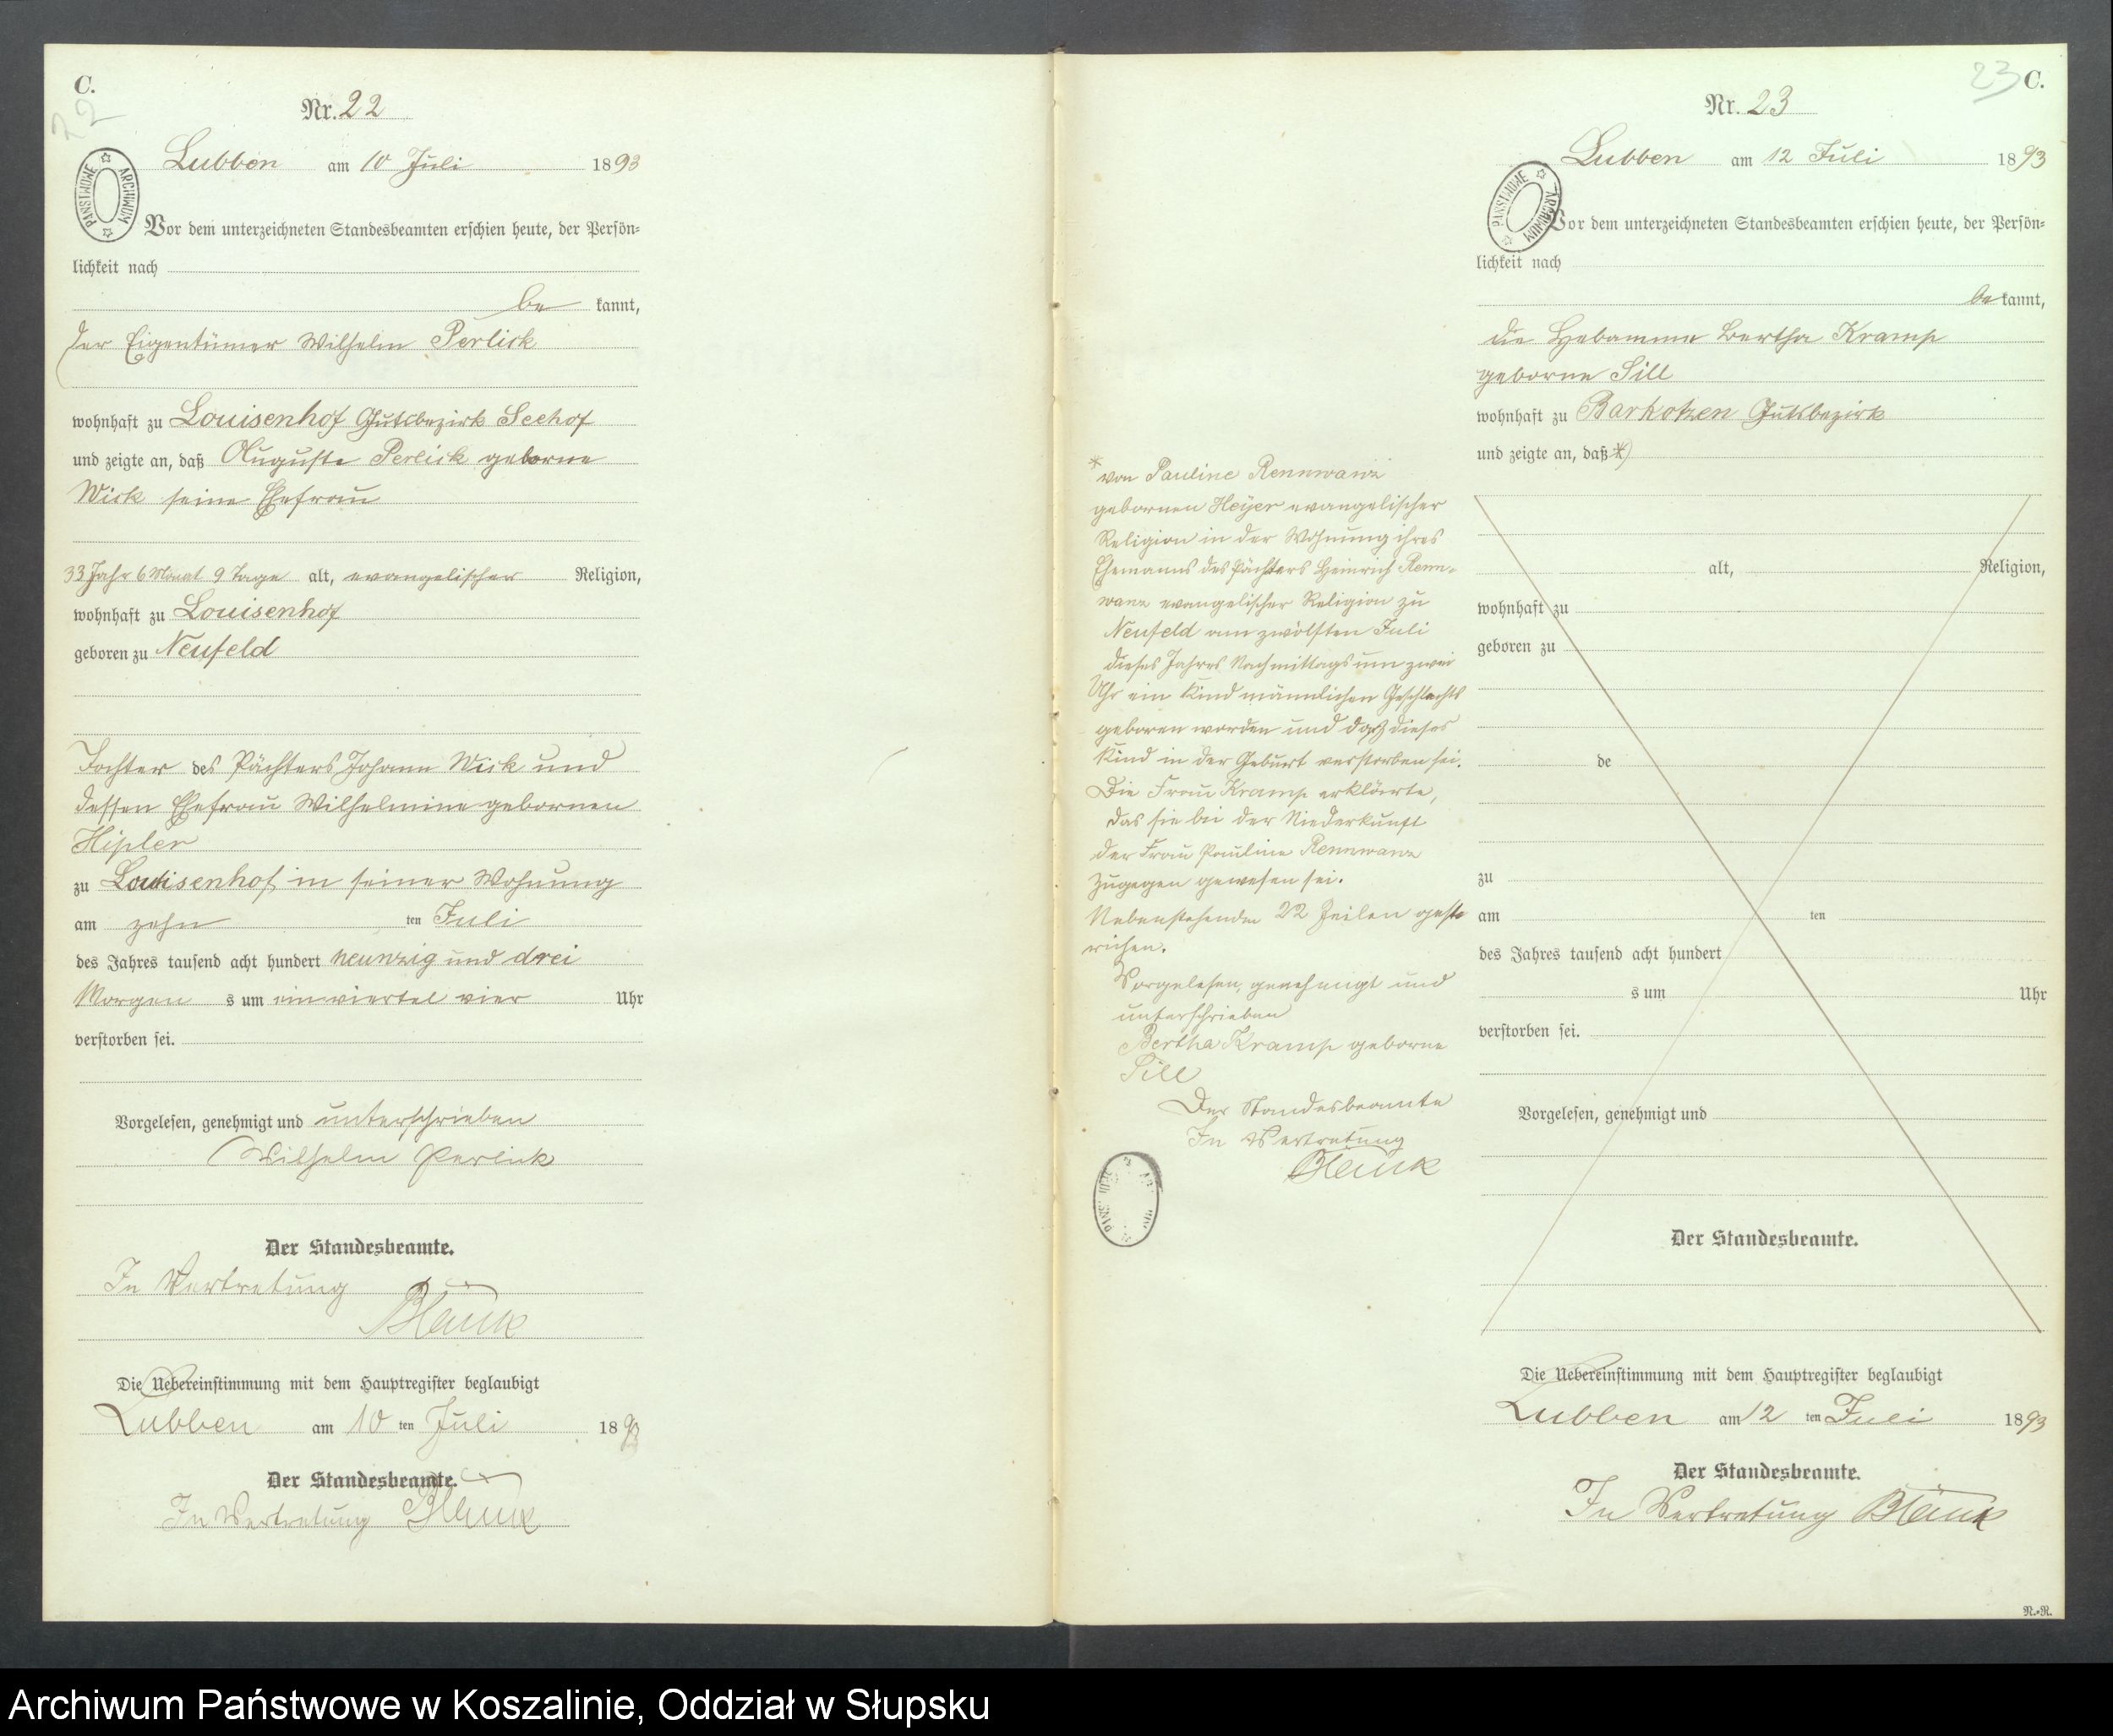 C.
22
Nr. 22
Lubben am 10 Juli 1893
PAŃSTWOWE ARCHIWUM
Vor dem unterzeichneten Standesbeamten erschien heute, der Persön-
lichkeit nach
be kannt,
der Eigentümer Wilhelm Perlick
wohnhaft zu Louisenhof Gutsbezirk Seehof
und zeigte an, daß Auguste Perlick geborne
Wick seine Ehefrau
33 Jahr 6 Monat 9 Tage alt, evangelischer Religion,
wohnhaft zu Louisenhof
geboren zu Neufeld
Tochter des Pächters Johann Wick und
dessen Ehefrau Wilhelmine gebornen
Hipler
zu Louisenhof in seiner Wohnung
am zehn ten Juli
des Jahres tausend acht hundert neunzig und drei
Morgen s um ein viertel vier Uhr
verstorben sei.
Vorgelesen, genehmigt und unterschrieben
Wilhelm Perlick
Der Standesbeamte.
In Vertretung
Blänk
Die Uebereinstimmung mit dem Hauptregister beglaubigt
Lubben am 10 ten Juli 1893
Der Standesbeamte.
In Vertretung Blänk
23 C.
Nr. 23
Lubben am 12 Juli 1893
PAŃSTWOWE ARCHIWUM
Vor dem unterzeichneten Standesbeamten erschien heute, der Persön-
lichkeit nach
be kannt,
die Hebamme Bertha Kramp
geborne Sill
wohnhaft zu Barkotzen Gutsbezirk
und zeigte an, daß *)
alt, Religion,
wohnhaft zu
geboren zu
de
zu
am ten
des Jahres tausend acht hundert
s um Uhr
verstorben sei.
Vorgelesen, genehmigt und
Der Standesbeamte.
* von Pauline Rennwanz
gebornen Heyer evangelischer
Religion in der Wohnung ihres
Ehemanns des Pächters Heinrich Renn-
wanz evangelischer Religion zu
Neufeld am zwölften Juli
dieses Jahres Nachmittags um zwei
Uhr ein Kind männlichen Geschlechts
geboren worden und daß dieses
Kind in der Geburt verstorben sei.
Die Frau Kramp erklärte,
das sie bei der Niederkunft
der Frau Pauline Rennwanz
zugegen gewesen sei.
Nebenstehende 22 Zeilen gest-
richen.
Vorgelesen, genehmigt und
unterschrieben
Bertha Kramp geborne
Sill
Der Standesbeamte
In Vertretung
Blänk
Die Uebereinstimmung mit dem Hauptregister beglaubigt
Lubben am 12 ten Juli 1893
Der Standesbeamte.
In Vertretung Blänk
N.-N.
Archiwum Państwowe w Koszalinie, Oddział w Słupsku